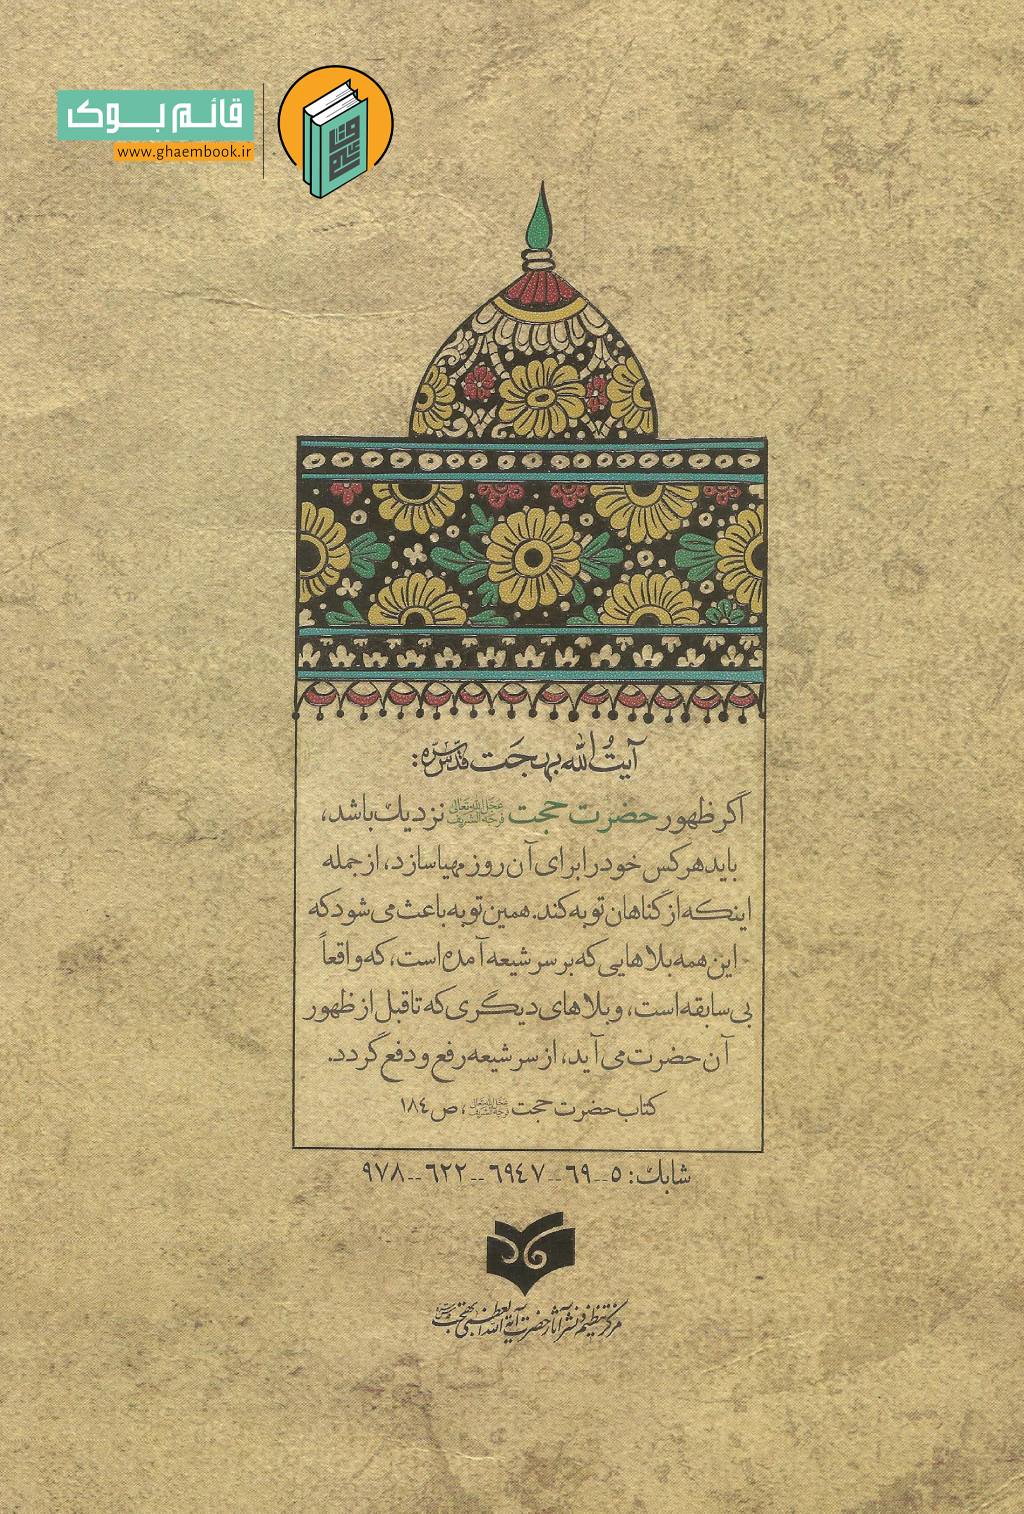 قائم بوک
www.ghaembook.ir
آیتُ‌الله بهجَت قدّس سرّه:
اگر ظهور حضرت حجت عجل الله تعالی فرجه الشریف نزدیك باشد،
باید هرکس خود را برای آن روز مهیا سازد، از جمله
اینکه از گناهان توبه کند. همین توبه باعث می شود که
این همه بلاهایی که بر سر شیعه آمده است، که واقعاً
بی سابقه است، و بلاهای دیگری که تا قبل از ظهور
آن حضرت می آید، از سر شیعه رفع و دفع گردد.
کتاب حضرت حجت عجل الله تعالی فرجه الشریف، ص ۱۸٤
شابك: ۵--۶۹--۶۹٤۷--۶۲۲--۹۷۸
مرکز تنظیم و نشر آثار حضرت آیة الله العظمی بهجت قدس سره